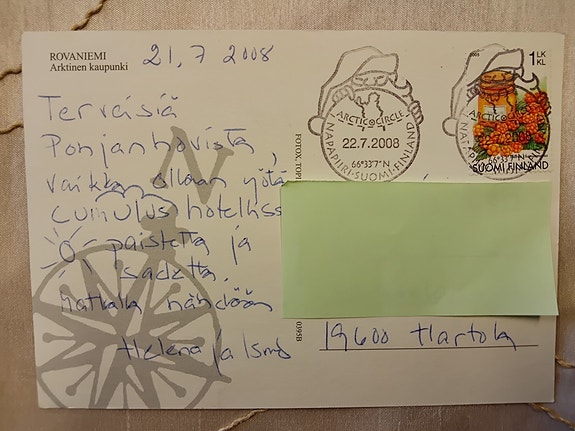 ROVANIEMI
Arktinen kaupunki
21.7 2008
Terveisiä
Pohjanhovista,
vaikka ollaan yötä
Cumulus hotellissa
paistetta ja
sadetta.
matkalla nähdään
Helena ja Ismo
FOTOX, TOP
0395B
ARCTIC CIRCLE
22.7.2008
66°33'7"N
NAPAPIIRI·SUOMI-FINLAND
1 LK
KL
ARCTIC CIRCLE
66°33'7"N
SUOMI FINLAND
19600 Hartola